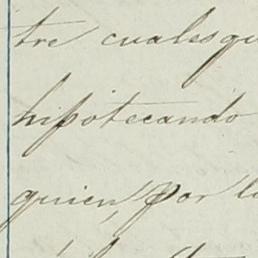 tre cualesqu
hipotecando
quien, por l